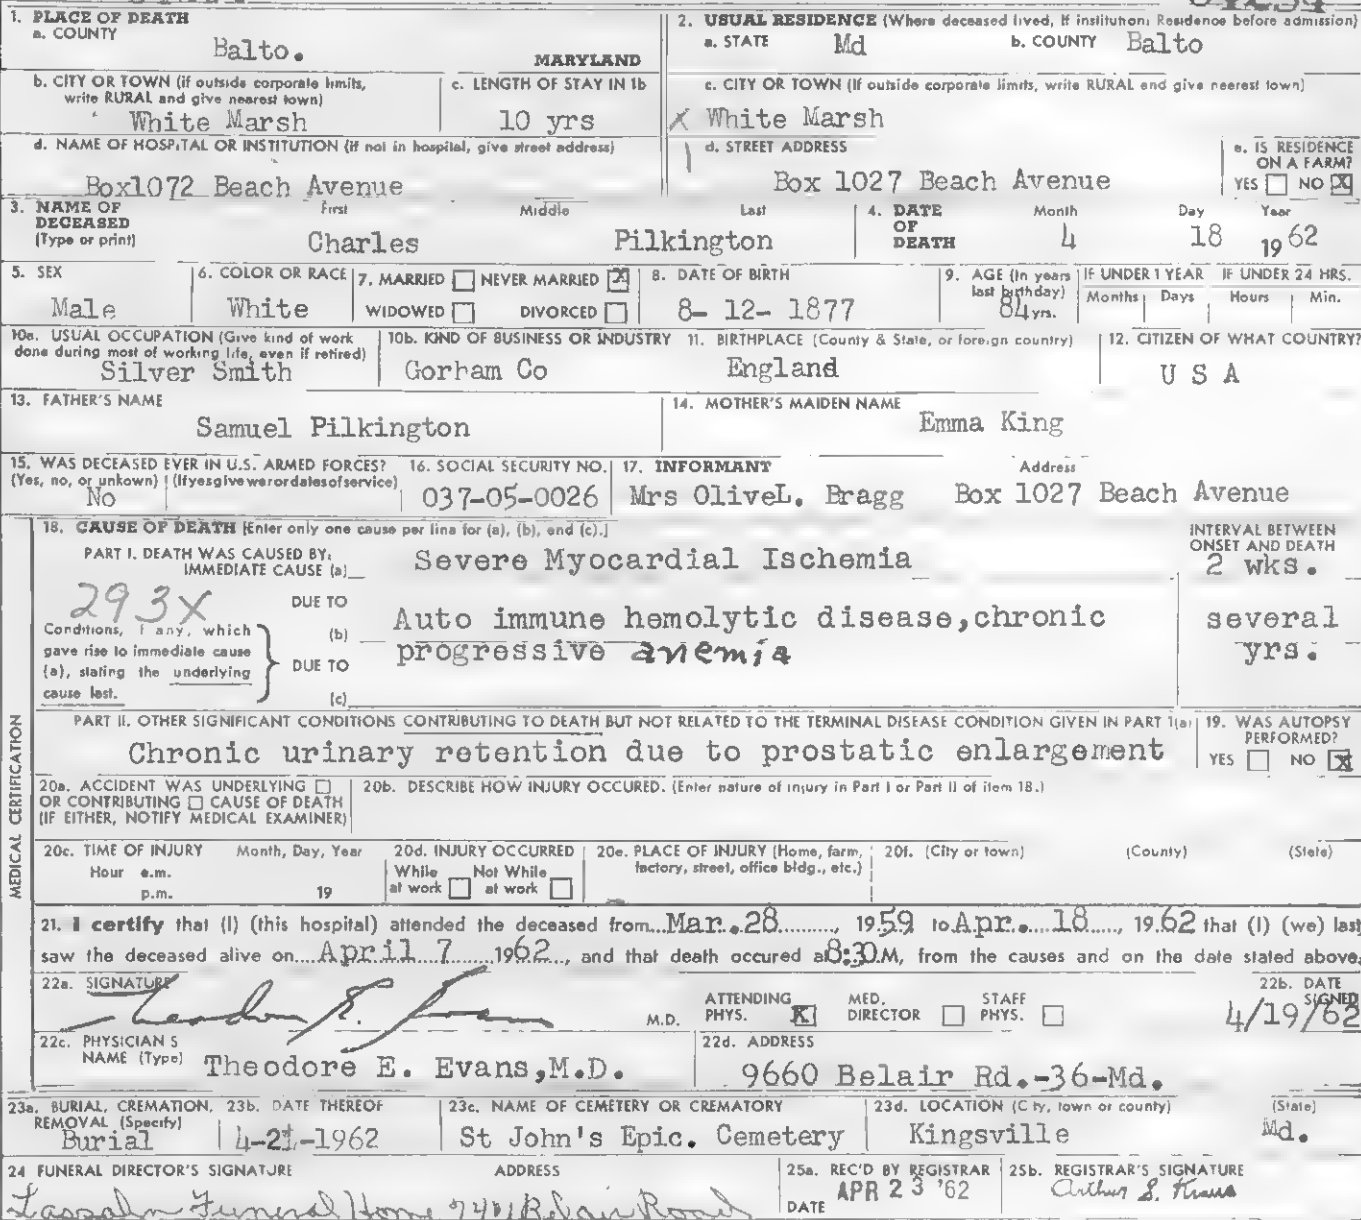 1. PLACE OF DEATH
a. COUNTY
Balto.
MARYLAND
2. USUAL RESIDENCE (Where deceased lived, If institution: Residence before admission)
a. STATE Md b. COUNTY Balto
b. CITY OR TOWN (if outside corporate limits, write RURAL and give nearest town)
White Marsh
c. LENGTH OF STAY IN 1b
10 yrs
c. CITY OR TOWN (If outside corporate limits, write RURAL and give nearest town)
X White Marsh
d. NAME OF HOSPITAL OR INSTITUTION (If not in hospital, give street address)
Box1072 Beach Avenue
d. STREET ADDRESS
Box 1027 Beach Avenue
e. IS RESIDENCE ON A FARM?
YES NO X
3. NAME OF DECEASED (Type or print)
First Middle Last
Charles Pilkington
4. DATE OF DEATH
Month Day Year
4 18 1962
5. SEX
Male
6. COLOR OR RACE
White
7. MARRIED NEVER MARRIED X
WIDOWED DIVORCED
8. DATE OF BIRTH
8- 12- 1877
9. AGE (In years last birthday)
84 yrs.
IF UNDER 1 YEAR IF UNDER 24 HRS.
Months Days Hours Min.
10a. USUAL OCCUPATION (Give kind of work done during most of working life, even if retired)
Silver Smith
10b. KIND OF BUSINESS OR INDUSTRY
Gorham Co
11. BIRTHPLACE (County & State, or foreign country)
England
12. CITIZEN OF WHAT COUNTRY?
U S A
13. FATHER'S NAME
Samuel Pilkington
14. MOTHER'S MAIDEN NAME
Emma King
15. WAS DECEASED EVER IN U.S. ARMED FORCES?
(Yes, no, or unkown) (Ifyesgivewarordatesofservice)
No
16. SOCIAL SECURITY NO.
037-05-0026
17. INFORMANT Address
Mrs OliveL. Bragg Box 1027 Beach Avenue
18. CAUSE OF DEATH [Enter only one cause per line for (a), (b), and (c).]
INTERVAL BETWEEN ONSET AND DEATH
PART I. DEATH WAS CAUSED BY:
IMMEDIATE CAUSE (a) Severe Myocardial Ischemia 2 wks.
293X
Conditions, if any, which gave rise to immediate cause (a), stating the underlying cause last.
DUE TO
(b) Auto immune hemolytic disease,chronic several
progressive anemia yrs.
DUE TO
(c)
PART II. OTHER SIGNIFICANT CONDITIONS CONTRIBUTING TO DEATH BUT NOT RELATED TO THE TERMINAL DISEASE CONDITION GIVEN IN PART 1(a)
Chronic urinary retention due to prostatic enlargement
19. WAS AUTOPSY PERFORMED?
YES NO X
MEDICAL CERTIFICATION
20a. ACCIDENT WAS UNDERLYING
OR CONTRIBUTING CAUSE OF DEATH
(IF EITHER, NOTIFY MEDICAL EXAMINER)
20b. DESCRIBE HOW INJURY OCCURED. (Enter nature of injury in Part I or Part II of item 18.)
20c. TIME OF INJURY Month, Day, Year
Hour a.m.
p.m. 19
20d. INJURY OCCURRED
While at work Not While at work
20e. PLACE OF INJURY (Home, farm, factory, street, office bldg., etc.)
20f. (City or town) (County) (State)
21. I certify that (I) (this hospital) attended the deceased from Mar. 28, 1959 to Apr. 18, 1962 that (I) (we) last
saw the deceased alive on April 7 1962, and that death occured at 8:30.M, from the causes and on the date stated above.
22a. SIGNATURE
Theodore E. Evans M.D.
ATTENDING PHYS. X MED. DIRECTOR STAFF PHYS.
22b. DATE SIGNED
4/19/62
22c. PHYSICIAN S NAME (Type)
Theodore E. Evans,M.D.
22d. ADDRESS
9660 Belair Rd.-36-Md.
23a. BURIAL, CREMATION, REMOVAL (Specify)
Burial
23b. DATE THEREOF
4-21-1962
23c. NAME OF CEMETERY OR CREMATORY
St John's Epic. Cemetery
23d. LOCATION (City, town or county) (State)
Kingsville Md.
24 FUNERAL DIRECTOR'S SIGNATURE ADDRESS
Lassahn Funeral Home 7401 Belair Road
25a. REC'D BY REGISTRAR
DATE APR 23 '62
25b. REGISTRAR'S SIGNATURE
Arthur S. Kraus